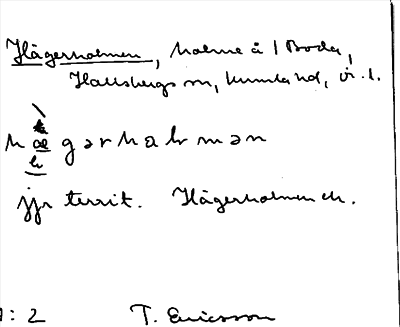 Hägerholmen, holme å 1 Boda,
Hallsbergs sn, Kumla hd, ör. l.
hægərhalmən
jfr territ. Hägerholmen ek.
: 2 T. Ericsson